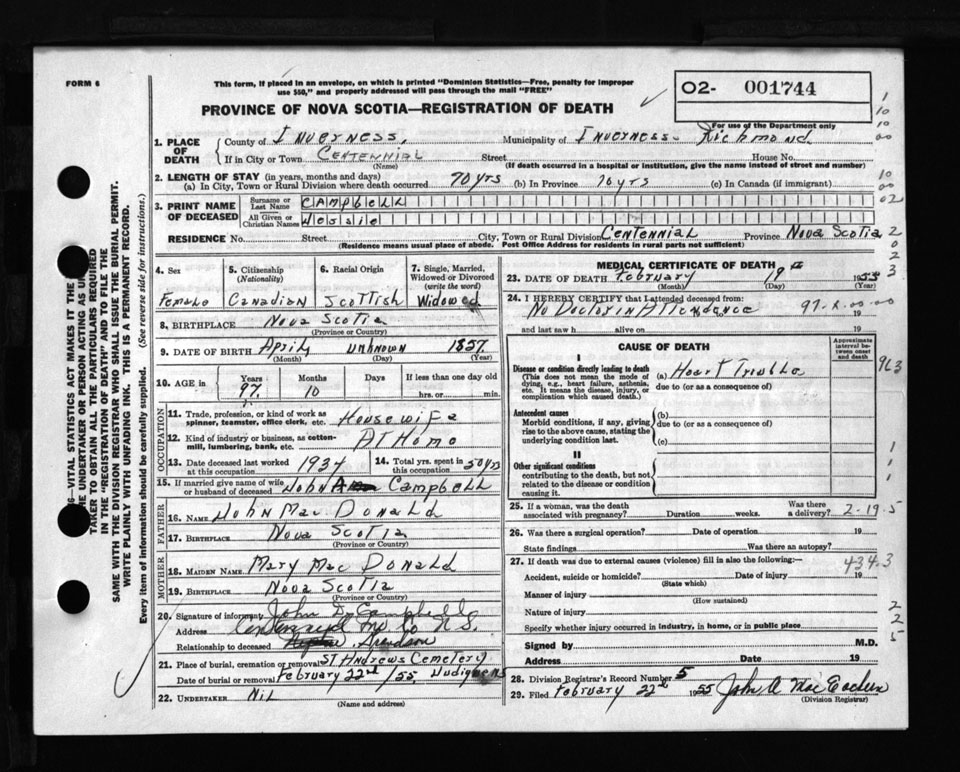 FORM 6
This form, if placed in an envelope, on which is printed "Dominion Statistics—Free, penalty for improper
use $50," and properly addressed will pass through the mail "FREE"
PROVINCE OF NOVA SCOTIA—REGISTRATION OF DEATH
02- 001744
For use of the Department only
1. PLACE OF DEATH
County of Inverness, Municipality of Inverness - Richmond
If in City or Town Centennial Street House No.
(Name) (If death occurred in a hospital or institution, give the name instead of street and number)
2. LENGTH OF STAY (in years, months and days)
(a) In City, Town or Rural Division where death occurred 70 yrs (b) In Province 70 yrs (c) In Canada (if immigrant)
3. PRINT NAME OF DECEASED
Surname or Last Name CAMPBELL
All Given or Christian Names Jessie
RESIDENCE No. Street City, Town or Rural Division Centennial Province Nova Scotia
(Residence means usual place of abode. Post Office Address for residents in rural parts not sufficient)
4. Sex Female
5. Citizenship (Nationality) Canadian
6. Racial Origin Scottish
7. Single, Married, Widowed or Divorced (write the word) Widowed
8. BIRTHPLACE Nova Scotia
(Province or Country)
9. DATE OF BIRTH April unknown 1857
(Month) (Day) (Year)
10. AGE in Years Months Days If less than one day
97 10 hrs. or min.
OCCUPATION
11. Trade, profession, or kind of work as spinner, teamster, office clerk, etc. Housewife
12. Kind of industry or business, as cotton-mill, lumbering, bank, etc. At Home
13. Date deceased last worked at this occupation 1934
14. Total yrs. spent in this occupation 50 yrs
15. If married give name of wife or husband of deceased John Campbell
FATHER
16. NAME John Mac Donald
17. BIRTHPLACE Nova Scotia
(Province or Country)
MOTHER
18. MAIDEN NAME Mary Mac Donald
19. BIRTHPLACE Nova Scotia
(Province or Country)
20. Signature of informant John D Campbell
Address Centennial Inv Co N.S.
Relationship to deceased Grandson
21. Place of burial, cremation or removal St Andrews Cemetery
Date of burial or removal February 22nd /55, Judique N.S
22. UNDERTAKER Nil
(Name and address)
MEDICAL CERTIFICATE OF DEATH
23. DATE OF DEATH February 19th 1955
(Month) (Day)
24. I HEREBY CERTIFY that I attended deceased from:
No Doctor in Attendance 19
97-X-00-00
and last saw h alive on 19
CAUSE OF DEATH
Approximate interval between onset and death
I
Disease or condition directly leading to death
(This does not mean the mode of dying, e.g., heart failure, asthenia, etc. It means the disease, injury, or complication which caused death.)
(a) Heart Trouble
due to (or as a consequence of)
963
Antecedent causes
Morbid conditions, if any, giving rise to the above cause, stating the underlying condition last.
(b)
due to (or as a consequence of)
(c)
II
Other significant conditions
contributing to the death, but not related to the disease or condition causing it.
25. If a woman, was the death associated with pregnancy? Duration weeks. Was there a delivery?
2-19-5
26. Was there a surgical operation? Date of operation 19
State findings Was there an autopsy?
27. If death was due to external causes (violence) fill in also the following:—
4343
Accident, suicide or homicide? Date of injury 19
(State which)
Manner of injury
(How sustained)
Nature of injury
Specify whether injury occurred in industry, in home, or in public place
Signed by M.D.
Address Date 19
28. Division Registrar's Record Number 5
29. Filed February 22nd 1955 John A Mac Eachen
(Division Registrar)
VITAL STATISTICS ACT MAKES IT THE
UNDERTAKER OR PERSON ACTING AS
TAKER TO OBTAIN ALL THE PARTICULARS REQUIRED
IN THE "REGISTRATION OF DEATH" AND TO FILE THE
SAME WITH THE DIVISION REGISTRAR WHO SHALL ISSUE THE BURIAL PERMIT.
WRITE PLAINLY WITH UNFADING INK. THIS IS A PERMANENT RECORD.
Every item of information should be carefully supplied. (See reverse side for instructions.)